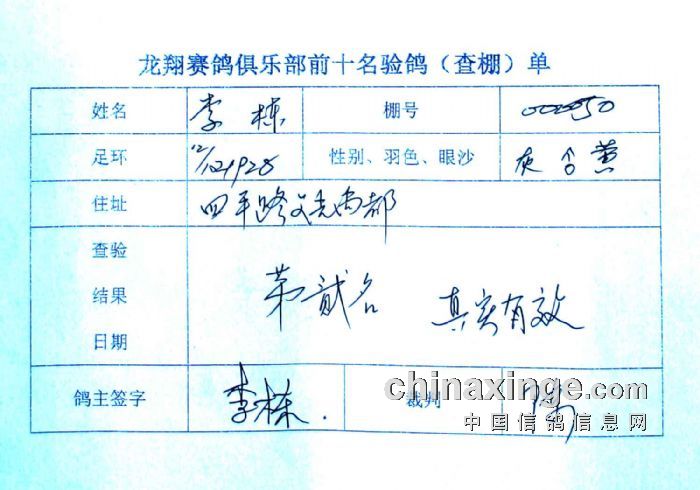 龙翔赛鸽俱乐部前十名验鸽（查棚）单
姓名 李栋 棚号 002050
足环 12/121928 性别、羽色、眼沙 灰 ♂ 黄
住址 四平路 尚都
查验
结果 第贰名 真实有效
日期
鸽主签字 李栋. 裁判
chinaxinge.com
中国信鸽信息网